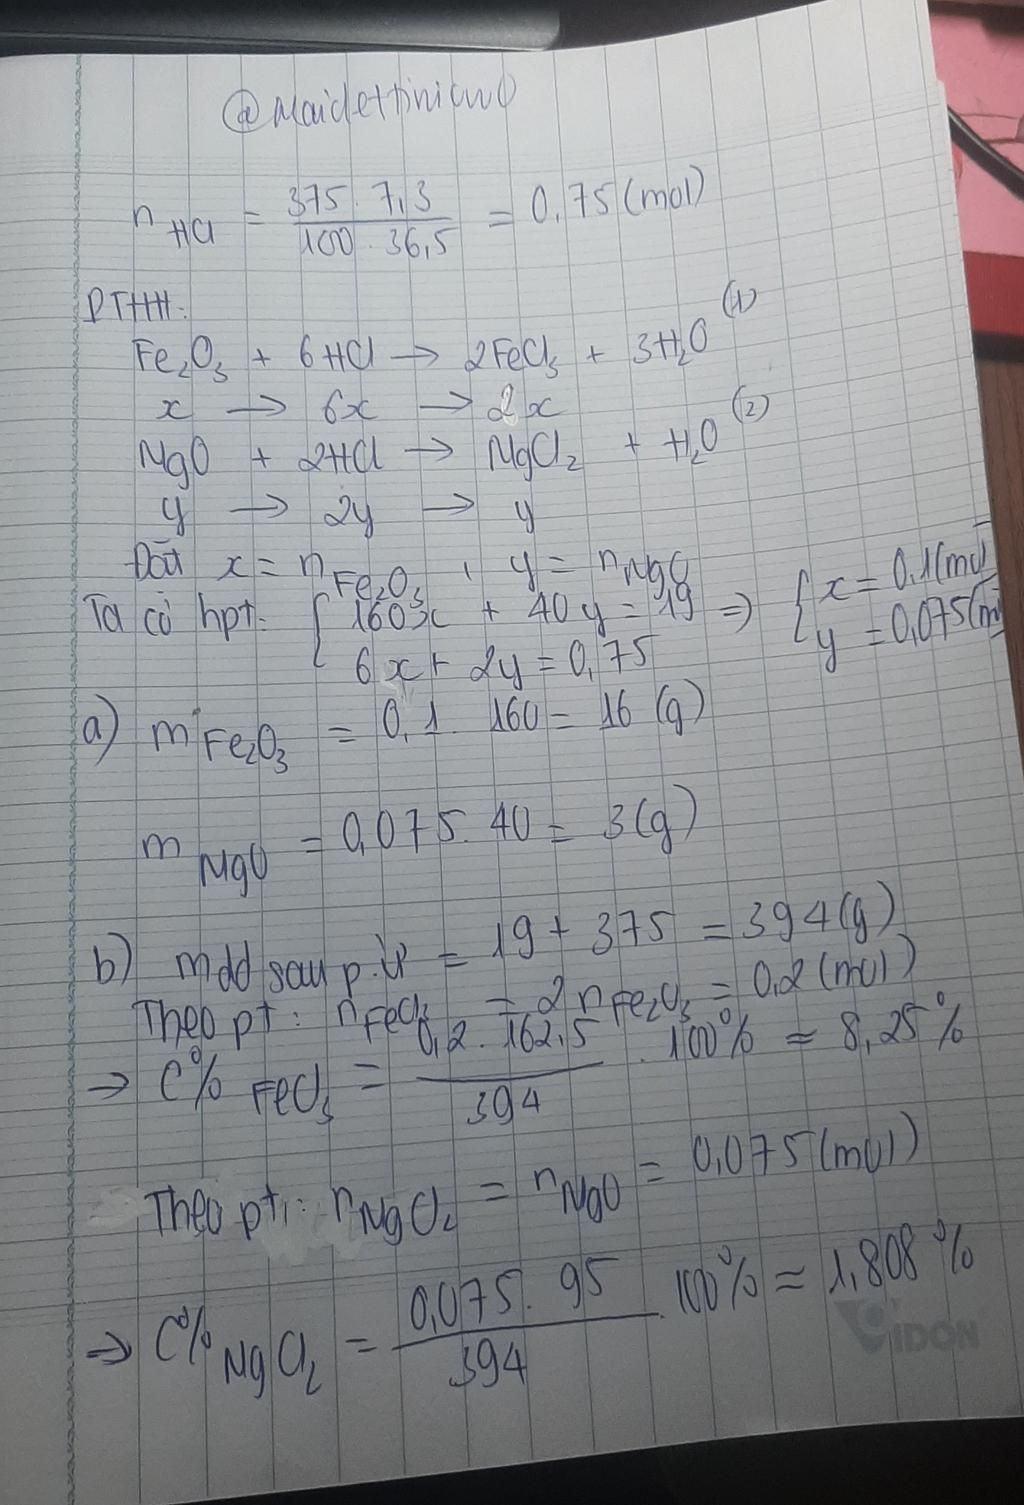 @maidettiniowo
n HCl = 375 . 7,3 / 100 . 36,5 = 0,75 (mol)
PTHH:
Fe₂O₃ + 6HCl → 2FeCl₃ + 3H₂O (1)
x → 6x → 2x
MgO + 2HCl → MgCl₂ + H₂O (2)
y → 2y → y
Đặt x = n Fe₂O₃ , y = n MgO
Ta có hpt: { 160x + 40y = 19 ⇒ { x = 0,1 (mol
6x + 2y = 0,75 y = 0,075 (m
a) m Fe₂O₃ = 0,1 . 160 = 16 (g)
m MgO = 0,075 . 40 = 3 (g)
b) mdd sau p.ứ = 19 + 375 = 394 (g)
Theo pt: n FeCl₃ = 2n Fe₂O₃ = 0,2 (mol)
⇒ C% FeCl₃ = 0,2 . 162,5 / 394 . 100% ≈ 8,25%
Theo pt: n MgCl₂ = n MgO = 0,075 (mol)
⇒ C% MgCl₂ = 0,075 . 95 / 394 . 100% ≈ 1,808%
IDON